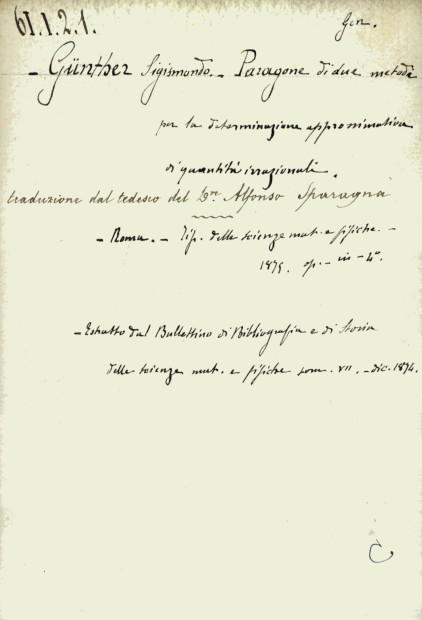 61.1.2.1.
Gen.
- Günther Sigismondo. - Paragone di due metodi
per la determinazione approssimativa
di quantità irrazionali.
traduzione dal tedesco del Dre Alfonso Sparagna
- Roma. - Tip. delle scienze mat. e fisiche. -
1875. op. - in - 4°.
- Estratto dal Bullettino di Bibliografia e di Storia
delle scienze mat. e fisiche tom. VII. - dic. 1874.
C